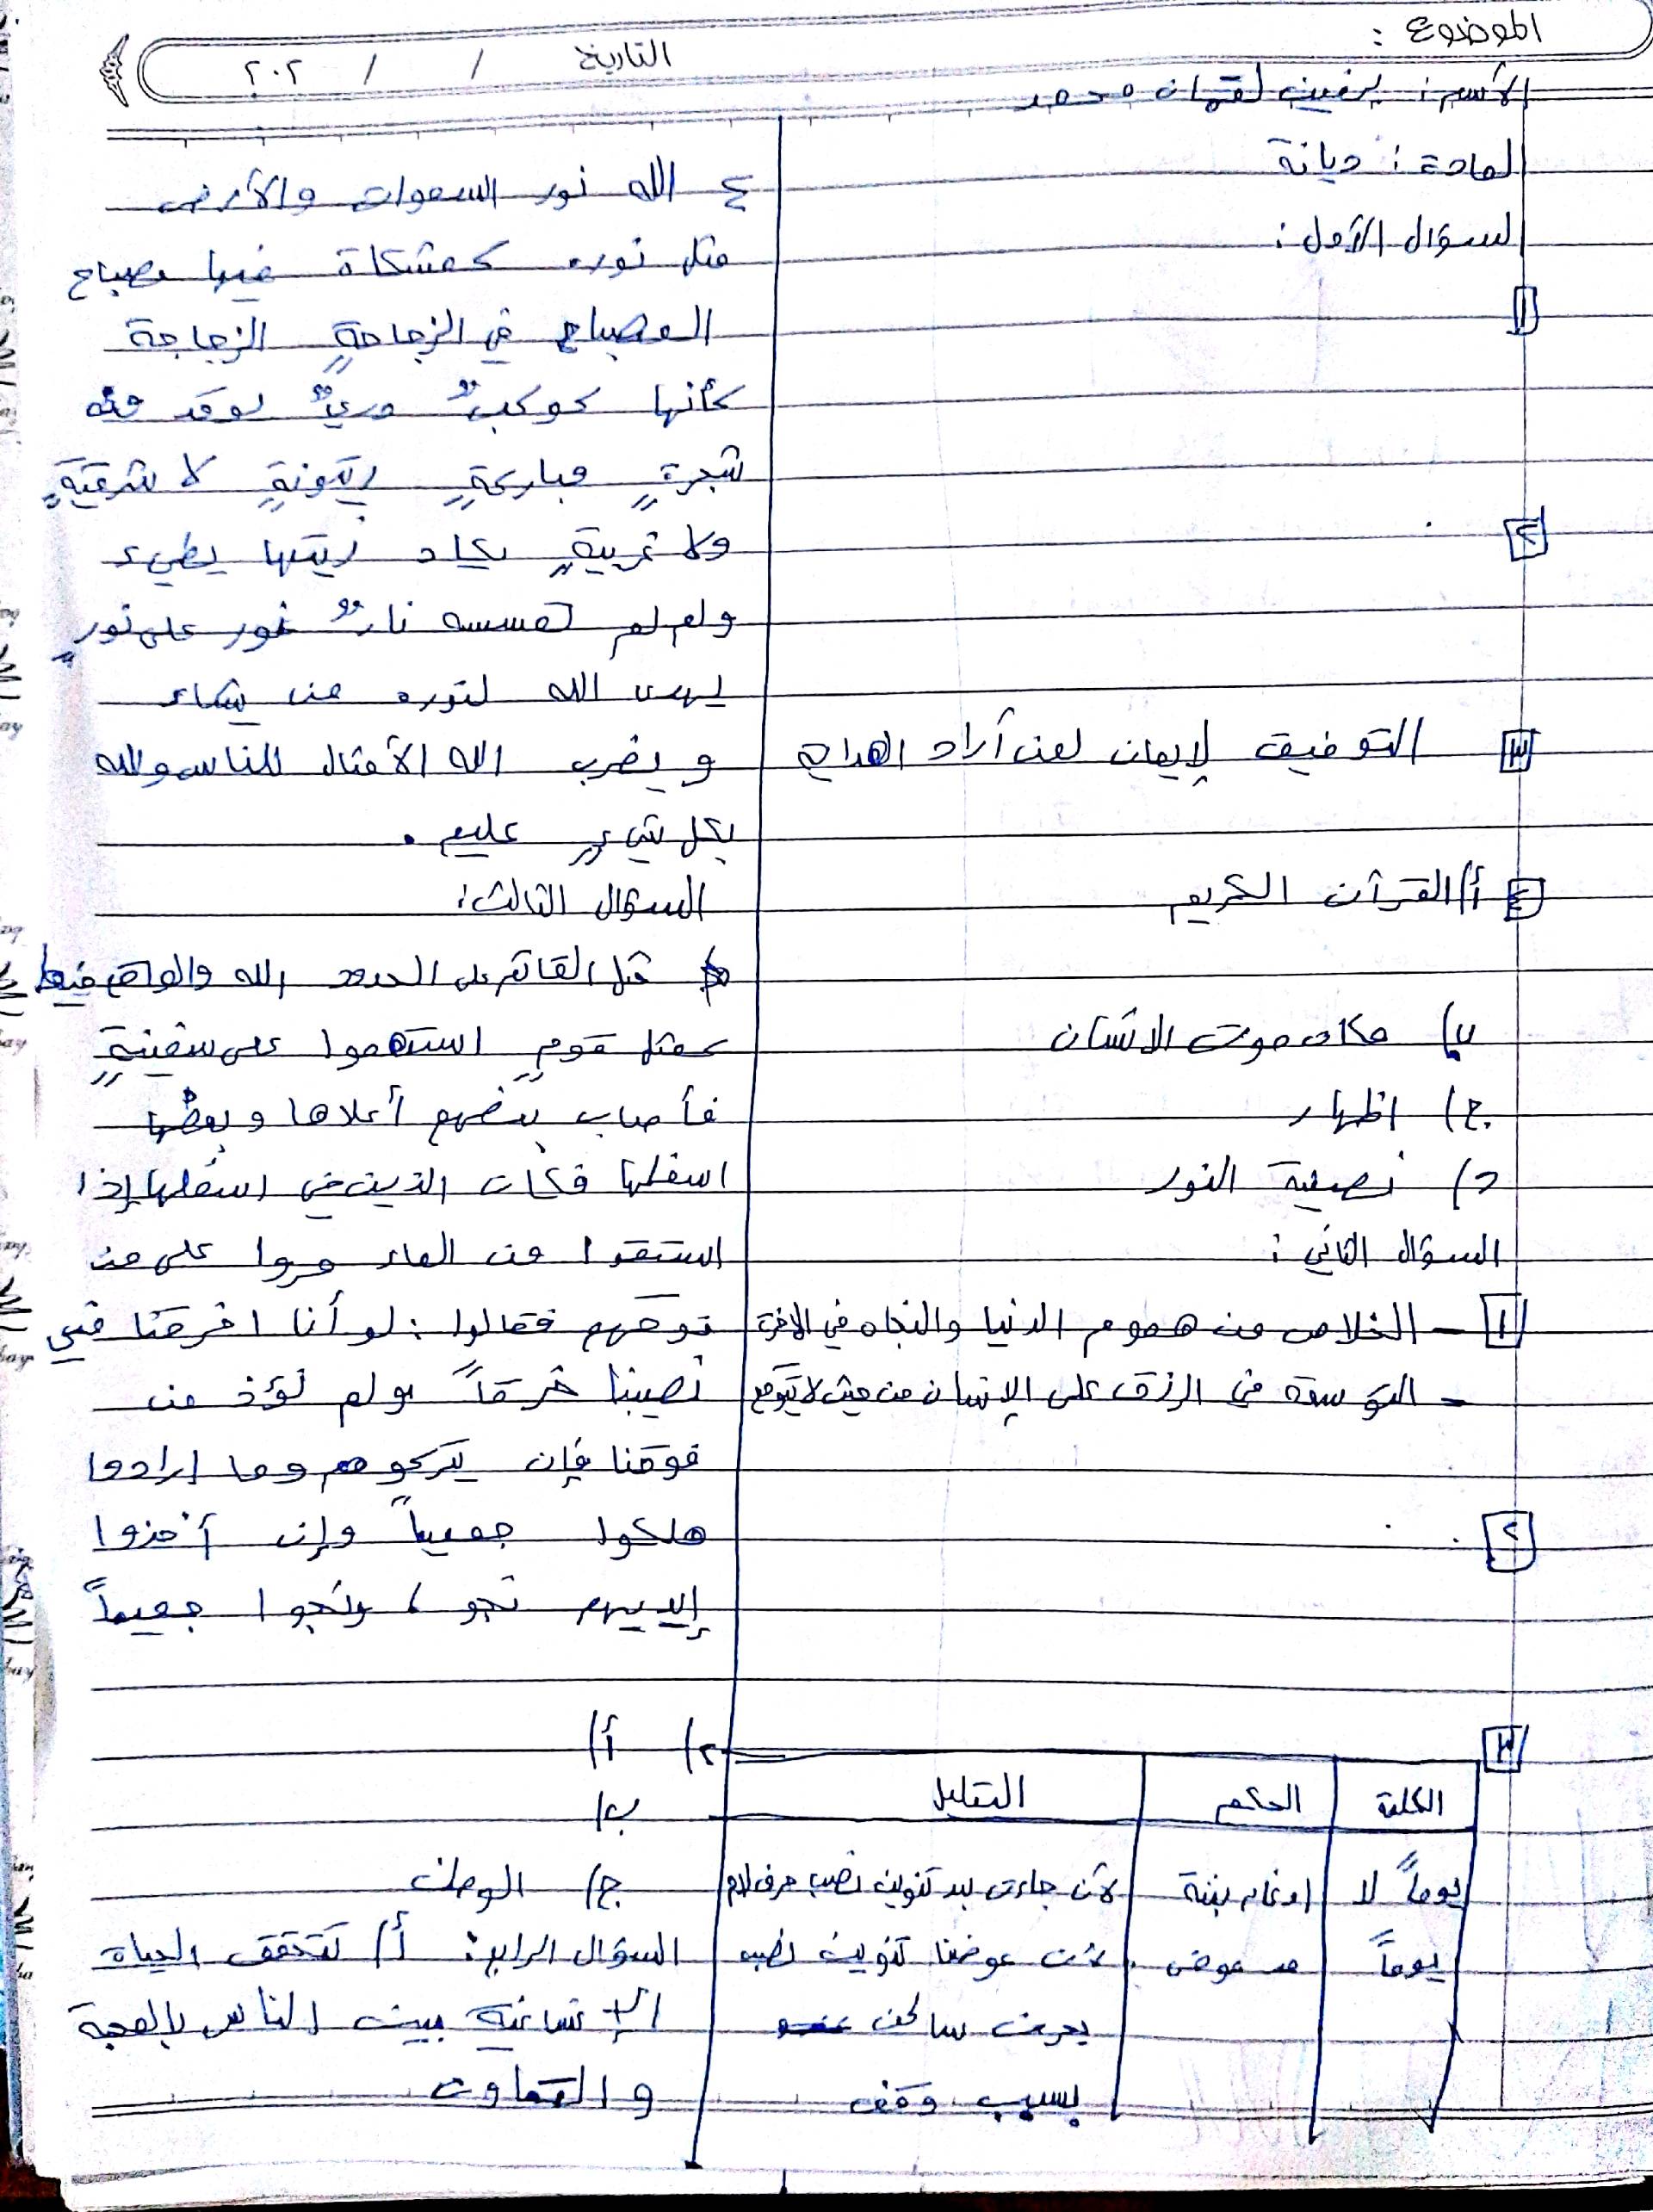 الموضوع :
التاريخ / / ٢٠٢
الأسم : لقمان محمد
المادة : ديانة
السؤال الأول :
١
٢
٣ التوفيق لإيمان لمن أراد الهداية
٤ أ/ القرآن الكريم
ب) مكان موت الانسان
ج) اظهار
د) تصفية النور
السؤال الثاني :
١ - الخلاص من هموم الدنيا والنجاه في الاخرة
- التوسعة في الرزق على الإنسان من حيث لا يتوقع
٢
٣
الكلمة الحكم التعليل
يوماً لا ادغام بغنة لأن جاءت بعد تنوين نصب حرف لام
يوماً مد عوض لأن عوضنا تنوين نصب
بحرف ساكن
بسبب وقف
٤ الله نور السموات والأرض
مثل نوره كمشكاة فيها مصباح
المصباح في الزجاجةٍ الزجاجة
كأنها كوكبٌ دريٌ يوقد منه
شجرةٍ مباركةٍ زيتونةٍ لا شرقيةٍ
ولا غربيةٍ يكاد زيتها يطيء
ولو لم تمسسه نارٌ نور على نورٍ
يهدى الله لنوره من يشاء
ويضرب الله الأمثال للناس والله
بكل شيءٍ عليم .
السؤال الثالث :
مثل القائم على الحدود الله والواقع فيها
كمثل قومٍ استهموا على سفينةٍ
فأصاب بعضهم أعلاها وبعضها
اسفلها فكان الذين في اسفلها إذا
استقوا من الماء مروا على من
فوقهم فقالوا : لو أنا اخرقنا في
نصيبنا خرقاً ولم نؤذ من
فوقنا فإن يتركوهم وما ارادوا
هلكوا جميعاً وإن أخذوا
إلايديهم نجوا ونجوا جميعاً
٢) أ)
ب)
ج) الوطن
السؤال الرابع : أ/ لتحقق الحياة
الإنسانية بين الناس بالمحبة
والتعاون